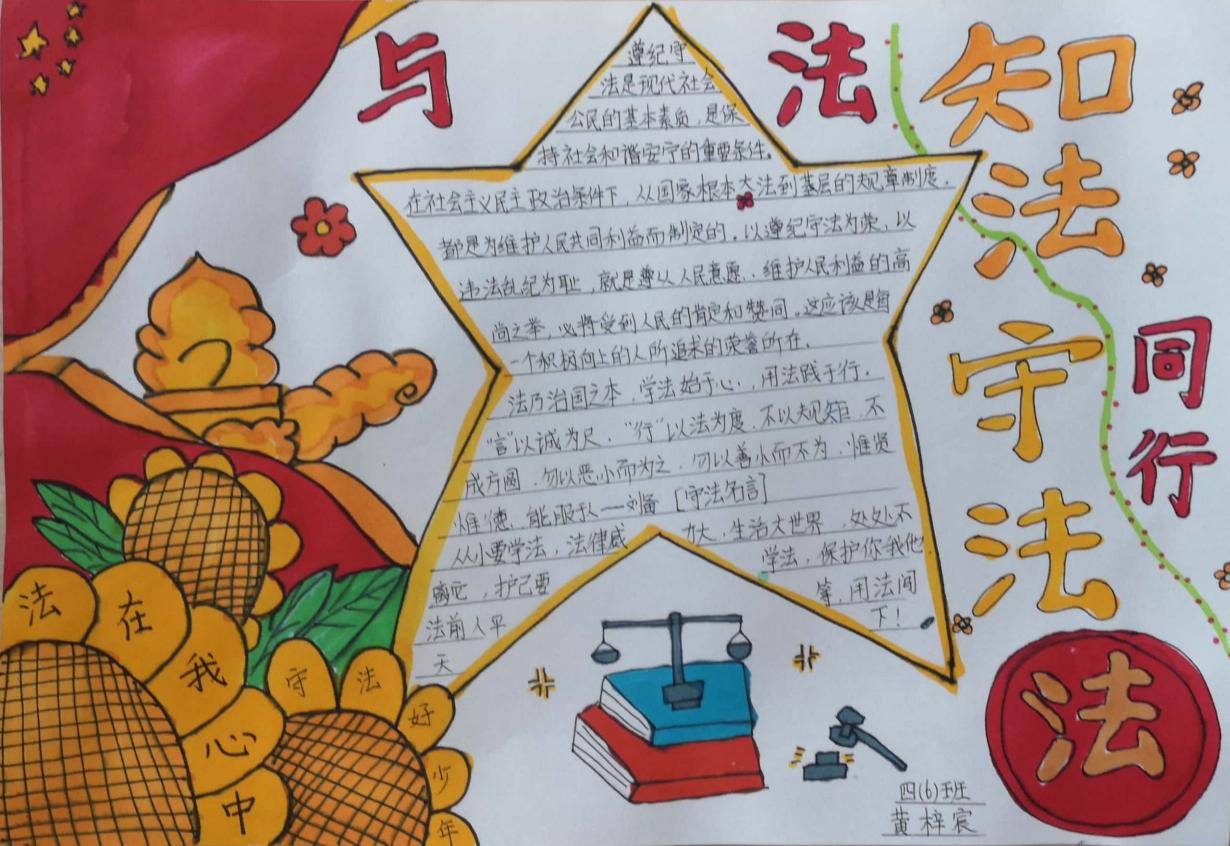 与法
同行
知法
守法
遵纪守
法是现代社会
公民的基本素质，是保
持社会和谐安宁的重要条件。
在社会主义民主政治条件下，从国家根本大法到基层的规章制度，
都是为维护人民共同利益而制定的。以遵纪守法为荣、以
违法乱纪为耻，就是尊从人民意愿、维护人民利益的高
尚之举，必将受到人民的肯定和赞同。这应该是每
一个积极向上的人所追求的荣誉所在。
法乃治国之本，学法始于心，用法践于行。
“言”以诚为尺，“行”以法为度，不以规矩，不
成方圆，勿以恶小而为之，勿以善小而不为，惟贤
惟德，能服于人——刘备 [守法名言]
从小要学法，法律威 力大，生活大世界，处处不
离它，护己要 学法，保护你我他
法前人平 等，用法间
天 下！
法在我心中
守法好少年
法
四(6)班
黄梓宸